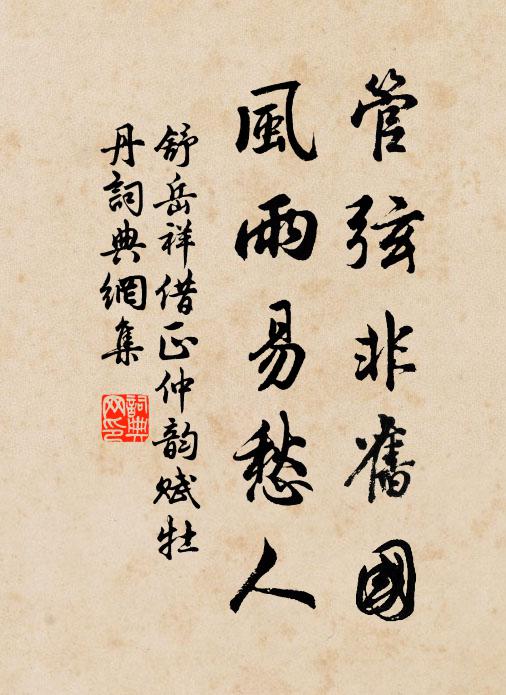 管弦非舊國
風雨易愁人
舒岳祥借正仲韵賦牡
丹詞典網集
詞典
网印